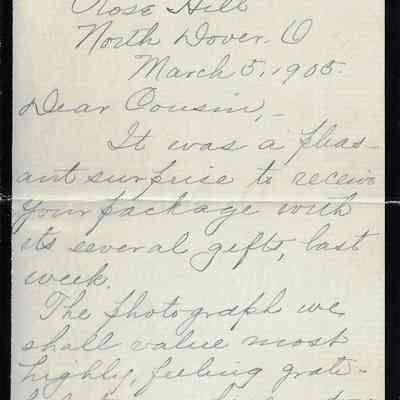 Rose Hill
North Dover. O
March 5, 1905.
Dear Cousin,-
It was a pleas-
ant surprise to receive
your package with
its several gifts, last
week.
The photograph we
shall value most
highly, feeling grate-